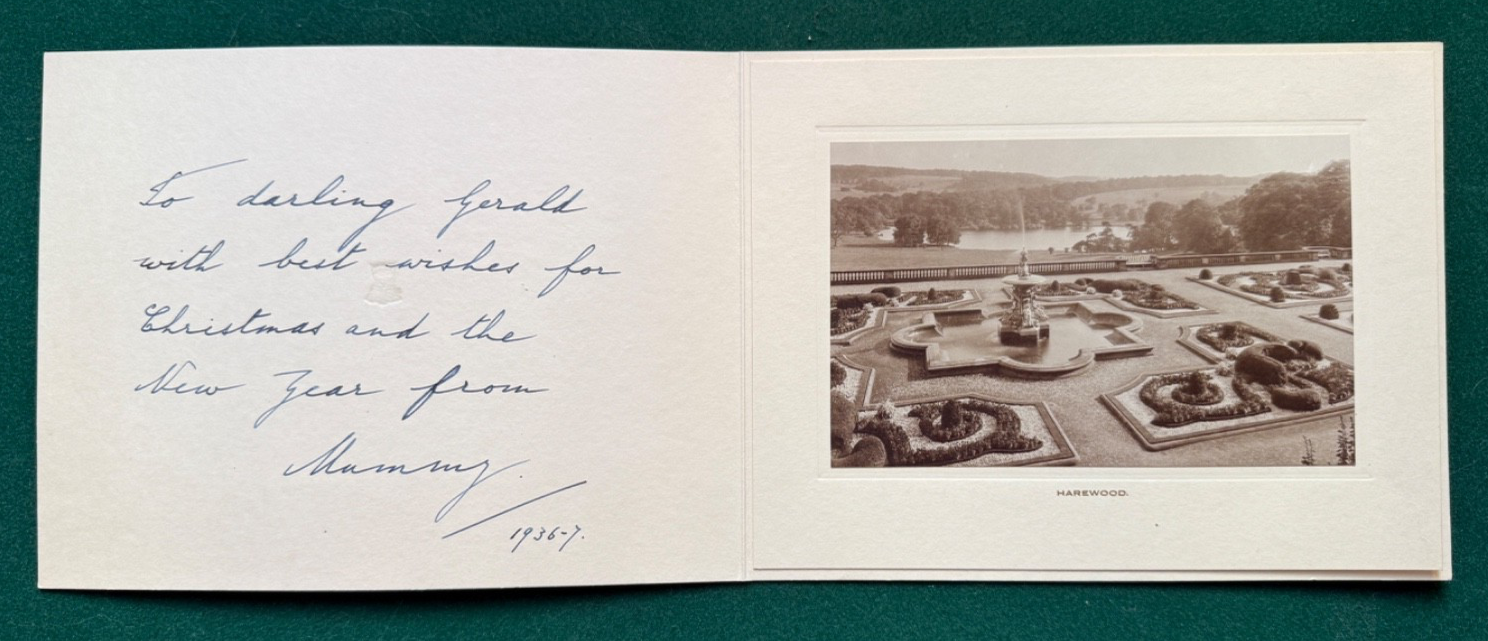 To darling Gerald
with best wishes for
Christmas and the
New Year from
Mummy.
1936-7.
HAREWOOD.